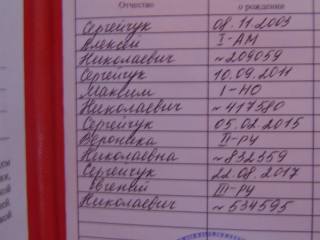 Отчество о рождении
Сергейчук 08.11.2003
Алексей I-АМ
Николаевич №209059
Сергейчук 10.09.2011
Максим I-НО
Николаевич №417580
Сергейчук 05.02.2015
Вероника II-РЦ
Николаевна №832359
Сергейчук 22.08.2017
Евгений III-РЦ
Николаевич №534595